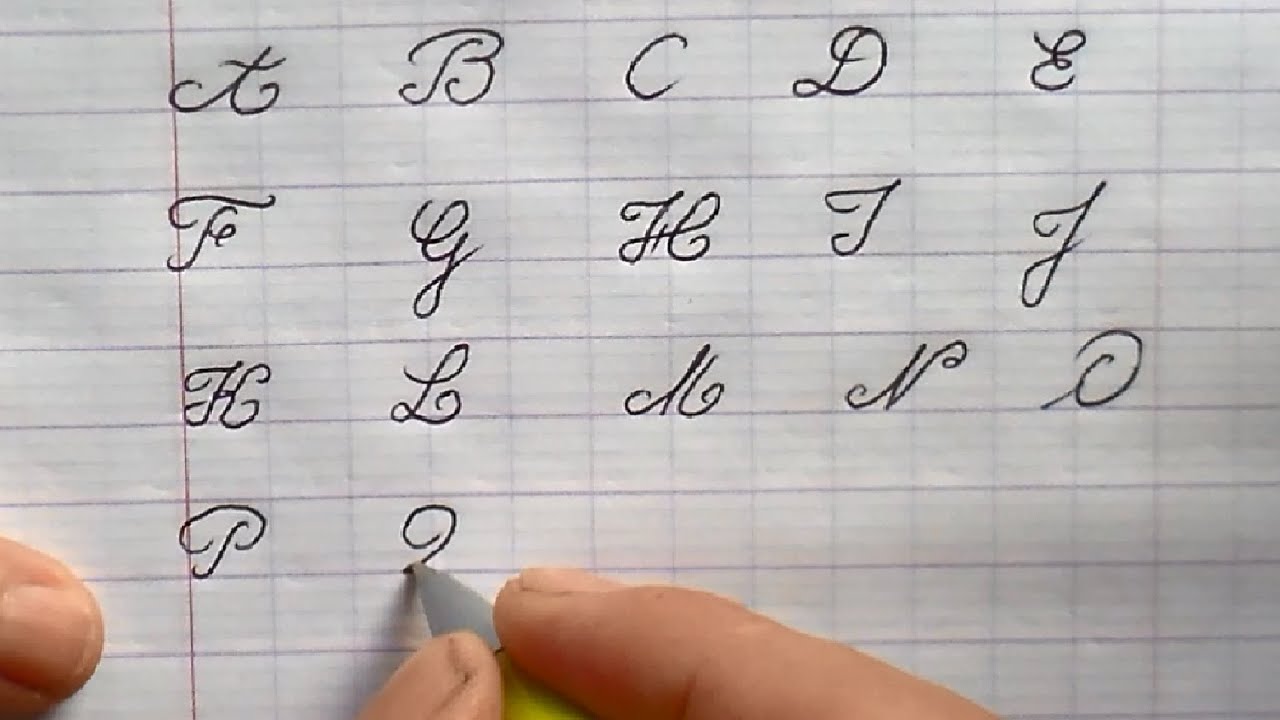 A B C D E
F G H I J
K L M N O
P Q